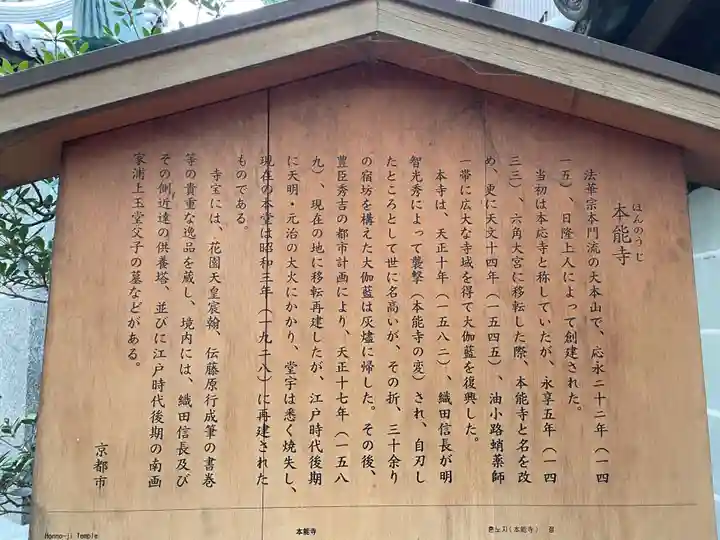 本能寺
ほんのうじ
法華宗本門流の大本山で、応永二十二年(一四
一五)、日隆上人によって創建された。
当初は本応寺と称していたが、永享五年(一四
三三)、六角大宮に移転した際、本能寺と名を改
め、更に天文十四年(一五四五)、油小路蛸薬師
一帯に広大な寺域を得て大伽藍を復興した。
本寺は、天正十年(一五八二)、織田信長が明
智光秀によって襲撃(本能寺の変)され、自刃し
たところとして世に名高いが、その折、三十余り
の宿坊を構えた大伽藍は灰燼に帰した。その後、
豊臣秀吉の都市計画により、天正十七年(一五八
九)、現在の地に移転再建したが、江戸時代後期
に天明・元治の大火にかかり、堂宇は悉く焼失し、
現在の本堂は昭和三年(一九二八)に再建された
ものである。
寺宝には、花園天皇宸翰、伝藤原行成筆の書巻
等の貴重な逸品を蔵し、境内には、織田信長及び
その側近達の供養塔、並びに江戸時代後期の南画
家浦上玉堂父子の墓などがある。
京都市
Honno-ji Temple
本能寺
혼노지(本能寺)